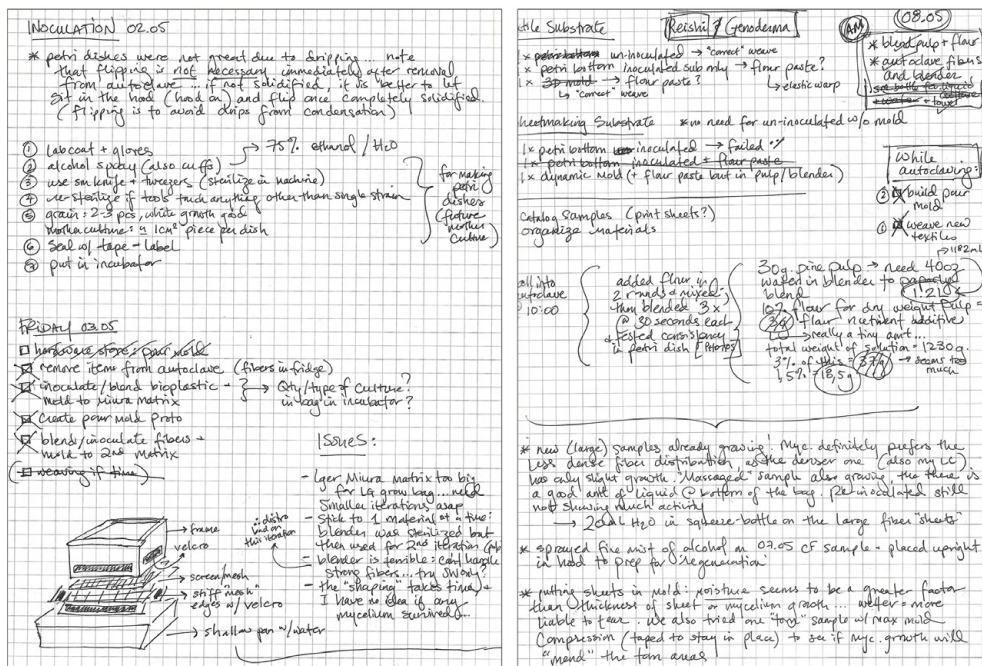 INOCULATION 02.05
* petri dishes were not great due to dripping... note
that flipping is not necessary immediately after removal
from autoclave... if not solidified, it is better to let
sit in the hood (hood on) and flip once completely solidified.
(flipping is to avoid drips from condensation)
① labcoat + gloves
② alcohol spray (also cuffs) → 75% ethanol / H2O
③ use sm knife + tweezers (sterilize in machine)
④ re-sterilize if tools touch anything other than single strain
⑤ grain: 2-3 pcs, white growth good
mother culture: 1cm² piece per dish
⑥ Seal w/ tape - label
put in incubator
for making
petri
dishes
(future
mother
culture)
FRIDAY 03.05
hardware store: pour mold
remove item from autoclave (fibers in fridge)
inoculate/blend bioplastic -
mold to Miura matrix
→ Qty/type of culture?
in bag in incubator?
create pour mold proto
blend/inoculate fibers -
mold to 2nd matrix
(weaving if time)
ISSUES:
- Lger Miura Matrix too big
for LG grow bag... need
smaller iterations asap
- Stick to 1 material at a time:
blender was sterilized but
then used for 2nd iteration
- blender is terrible: can't handle
strong fibers... try
- the "shaping" takes time +
I have no idea if any
mycelium survived...
∴ distro
bad on
this iteration
→ frame
velcro
→ screen/mesh
→ stiff mesh
edges w/ velcro
→ shallow pan w/ water
tile Substrate
Reishi / Genoderma
AM
08.05
* blend pulp + flour
* autoclave fibers
and blender
+ towel
1x petri bottom un-inoculated → "correct" weave
* petri bottom inoculated sub only → flour paste?
1x 3D mold → flour paste?
↳ "correct" weave
↳ elastic warp
heetmaking Substrate * no need for un-inoculated w/o mold
1x petri bottom inoculated → failed
1x petri bottom inoculated + flour paste
1x dynamic mold (+ flour paste but in pulp/blender)
While
autoclaving:
② build pour
mold
① weave new
textiles
Catalog Samples (print sheets?)
organize materials
→ 1182ml
all into
autoclave
10:00
added flour in
2 rounds + mixed;
then blended 3x
@ 30 seconds each
+ tested consistency
in petri dish [PHOTOS]
30g. pine pulp → need 40oz
water in blender to
blend
10% flour for dry weight pulp =
3g flour nutriment additive
↳ really a tiny amt...
total weight of solution = 1230g.
3% of this = 37g → seems too
much
1,5% = 18,5g
* new (large) samples already growing! Myc. definitely prefers the
less dense fiber distribution, as the denser one (also my LC)
has only slight growth. "Massaged" sample also growing, tho there is
a good amt of liquid @ bottom of the bag. Re-inoculated still
not showing much activity
→ 20ml H2O in squeeze-bottle on the large fiber "sheets"
* sprayed fine mist of alcohol on 07.05 CF sample + placed upright
in hood to prep for "regeneration"
* putting sheets in mold: moisture seems to be a greater factor
than thickness of sheet or mycelium growth... wetter = more
liable to tear. We also tried one "torn" sample w/ max mold
compression (taped to stay in place) to see if myc. growth will
"mend" the torn areas!